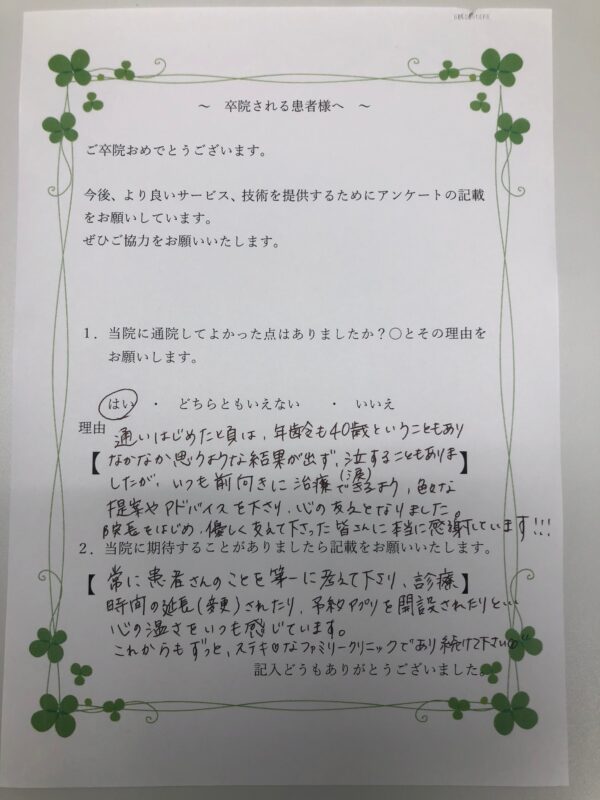 ～ 卒院される患者様へ ～
ご卒院おめでとうございます。
今後、より良いサービス、技術を提供するためにアンケートの記載
をお願いしています。
ぜひご協力をお願いいたします。
1．当院に通院してよかった点はありましたか？○とその理由を
お願いします。
はい ・ どちらともいえない ・ いいえ
理由
通いはじめたと頃は、年齢も40歳ということもあり
【なかなか思うような結果が出ず、泣することもありま】
(涙)
したが、いつも前向きに治療できるよう、色々な
提案やアドバイスを下さり、心の支えとなりました。
院長をはじめ、優しく支えて下さった皆さんに本当に感謝しています!!!
2．当院に期待することがありましたら記載をお願いいたします。
【常に患者さんのことを第一に考えて下さり、診療】
時間の延長(変更)されたり、予約アプリを開設されたりと
心の温さをいつも感じています。
これからもずっと、ステキなファミリークリニックであり続けて下さい
記入どうもありがとうございました。